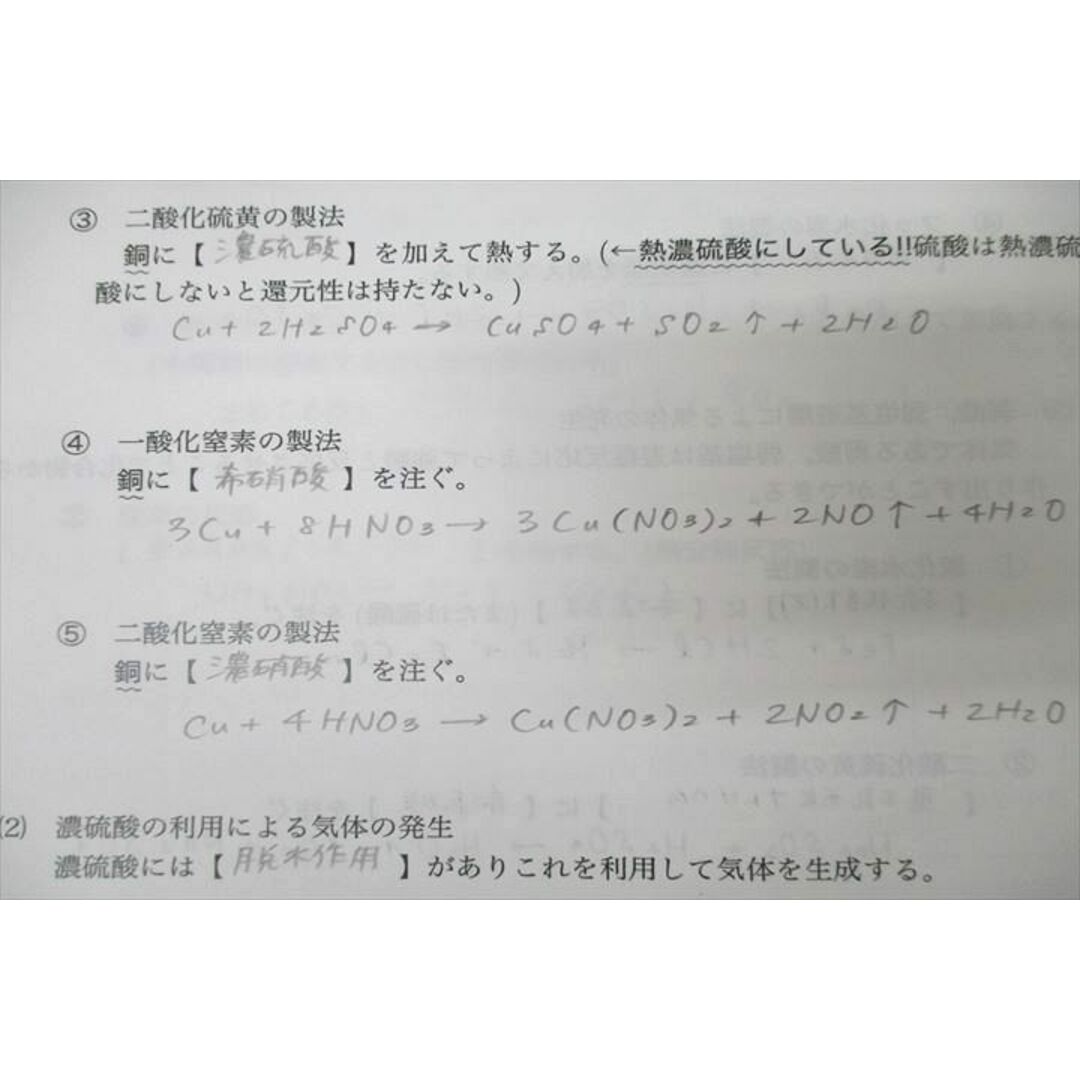 ③ 二酸化硫黄の製法
銅に【 濃硫酸 】を加えて熱する。(←熱濃硫酸にしている!!硫酸は熱濃硫
酸にしないと還元性は持たない。)
Cu + 2H2SO4 → CuSO4 + SO2 ↑ + 2H2O
④ 一酸化窒素の製法
銅に【 希硝酸 】を注ぐ。
3Cu + 8HNO3 → 3Cu(NO3)2 + 2NO↑ + 4H2O
⑤ 二酸化窒素の製法
銅に【 濃硝酸 】を注ぐ。
Cu + 4HNO3 → Cu(NO3)2 + 2NO2↑ + 2H2O
(2) 濃硫酸の利用による気体の発生
濃硫酸には【 脱水作用 】がありこれを利用して気体を生成する。